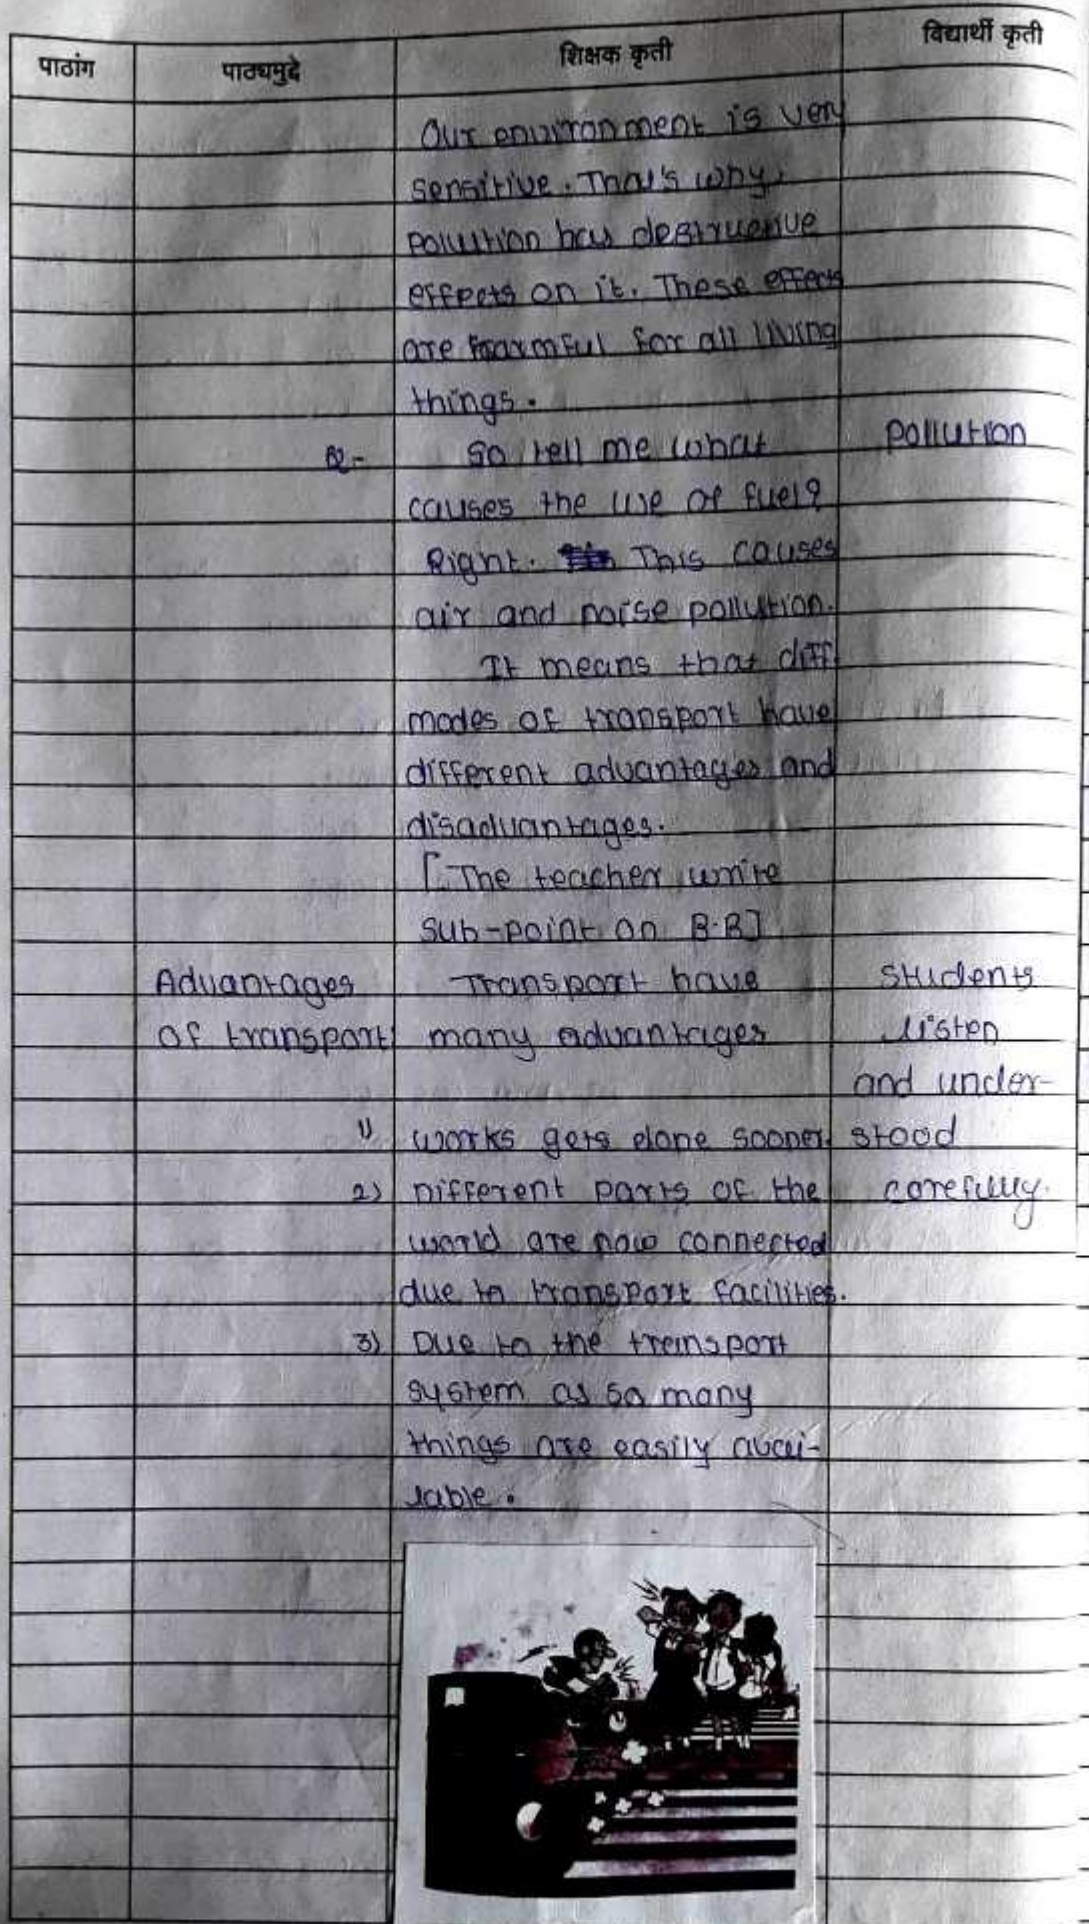 पाठांग पाठ्यमुद्दे शिक्षक कृती विद्यार्थी कृती
Our environment is very
sensitive. That's why
pollution has destructive
effects on it. These effects
are harmful for all living
things.
Q- So tell me what Pollution
causes the use of fuel?
Right. This causes
air and noise pollution.
It means that diff
modes of transport have
different advantages and
disadvantages.
[The teacher write
sub-point on B.B]
Advantages Transport have Students
of transport many advantages listen
and under-
1) works gets done sooner. stood
2) Different parts of the carefully.
world are now connected
due to transport facilities.
3) Due to the transport
system as so many
things are easily avai-
lable.